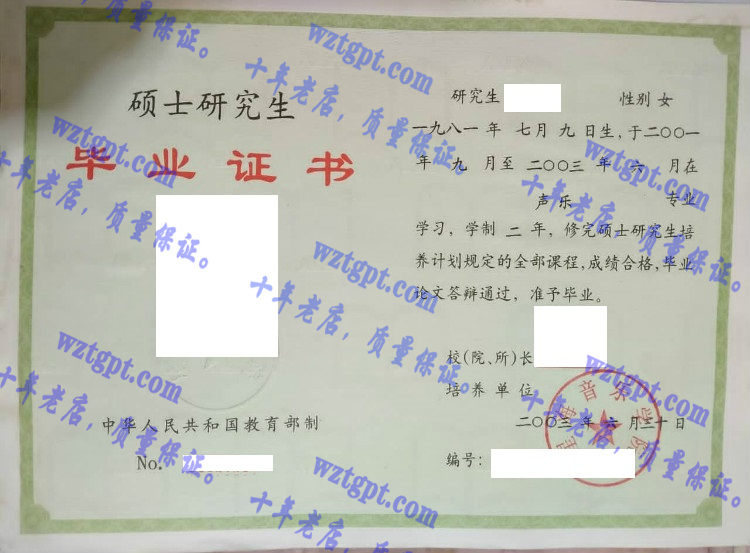 硕士研究生
毕业证书
中华人民共和国教育部制
No.
研究生 性别 女
一九八一 年 七月 九 日生,于二〇〇一
年 九 月至 二〇〇三 年 六 月在
声乐 专业
学习,学制 二 年,修完硕士研究生培
养计划规定的全部课程,成绩合格,毕业
论文答辩通过,准予毕业。
校(院、所)长
培养单位
音乐学院
二〇〇三 年 六 月三十日
编号:
wztgpt.com
十年老店,质量保证。
wztgpt.com
十年老店,质量保证。
wztgpt.com
十年老店,质量保证。
wztgpt.com
十年老店,质量保证。
wztgpt.com
十年老店,质量保证。
wztgpt.com
十年老店,质量保证。
wztgpt.com
十年老店,质量保证。